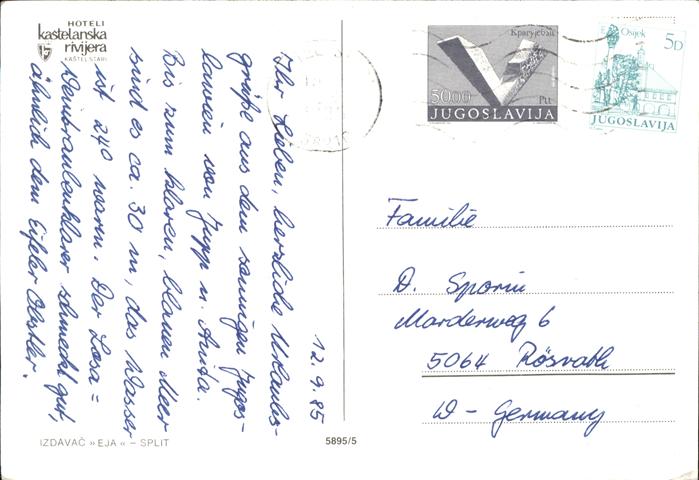 HOTELI
kaštelanska
rivijera
KAŠTEL STARI
12.9.85
Ihr Lieben, herzliche Urlaubs-
grüße aus dem sonnigen Jugos-
lawien von Jupp u. Anita.
Bis zum klaren, blauen Meer
sind es ca. 30 m, das Wasser
ist 24° warm. Der Losa =
Weintraubenklarer schmeckt gut,
ähnlich dem Eifeler Obstler.
IZDAVAČ »EJA« – SPLIT
5895/5
5000
Ptt
JUGOSLAVIJA
Osijek
5D
JUGOSLAVIJA
Familie
D. Sporin
Marderweg 6
5064 Rösrath
W - Germany